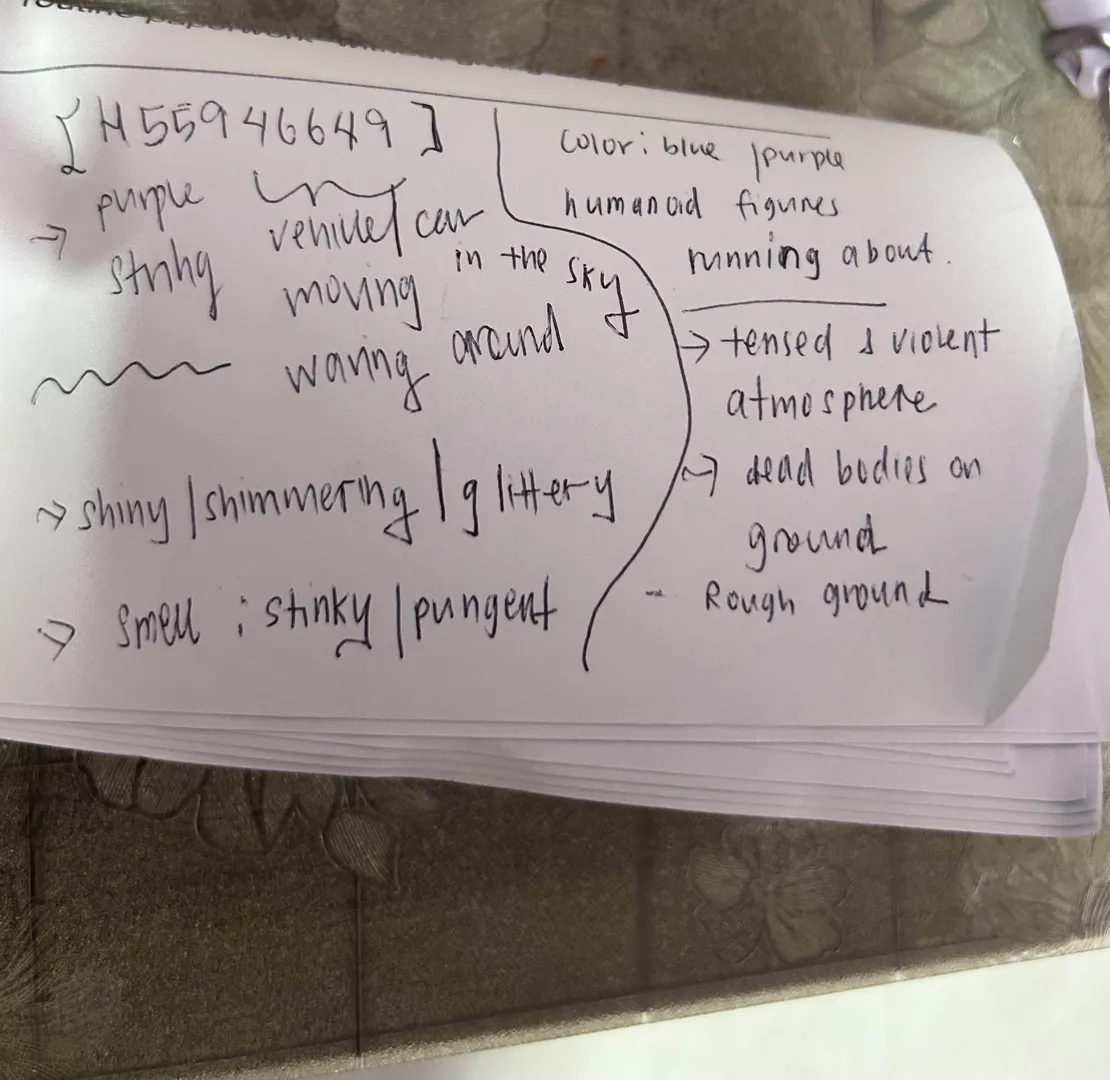 [H55946649]
purple vehicle/car
→ string moving in the sky
waving around
→ shiny/shimmering/glittery
→ smell : stinky/pungent
color: blue/purple
humanoid figures
running about.
→ tensed & violent
atmosphere
→ dead bodies on
ground
- Rough ground